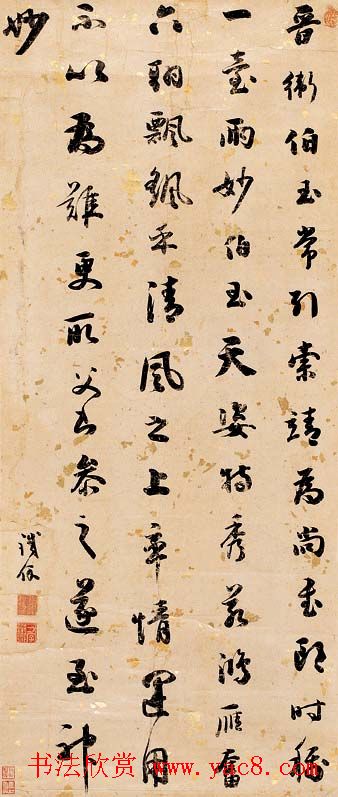 晋衛伯玉常引索靖為尚書郎時稱
一臺兩妙伯玉天姿特秀若鴻雁奮
六翮飄飄乎清風之上率情運用
不以為難更取父書參之遂至神
妙
书法欣赏 www.yac8.com